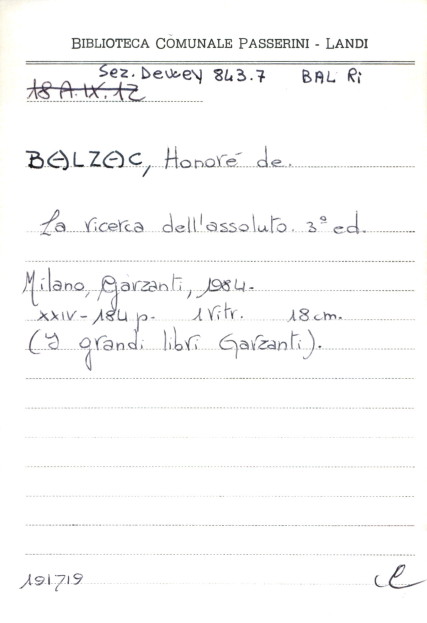 BIBLIOTECA COMUNALE PASSERINI - LANDI
Sez. Dewey 843.7 BAL Ri
18 A.IX.12
BALZAC, Honoré de.
La ricerca dell'assoluto. 3ª ed.
Milano, Garzanti, 1984.
XXIV - 184 p. 1 Vitr. 18 cm.
(I grandi libri Garzanti).
191719